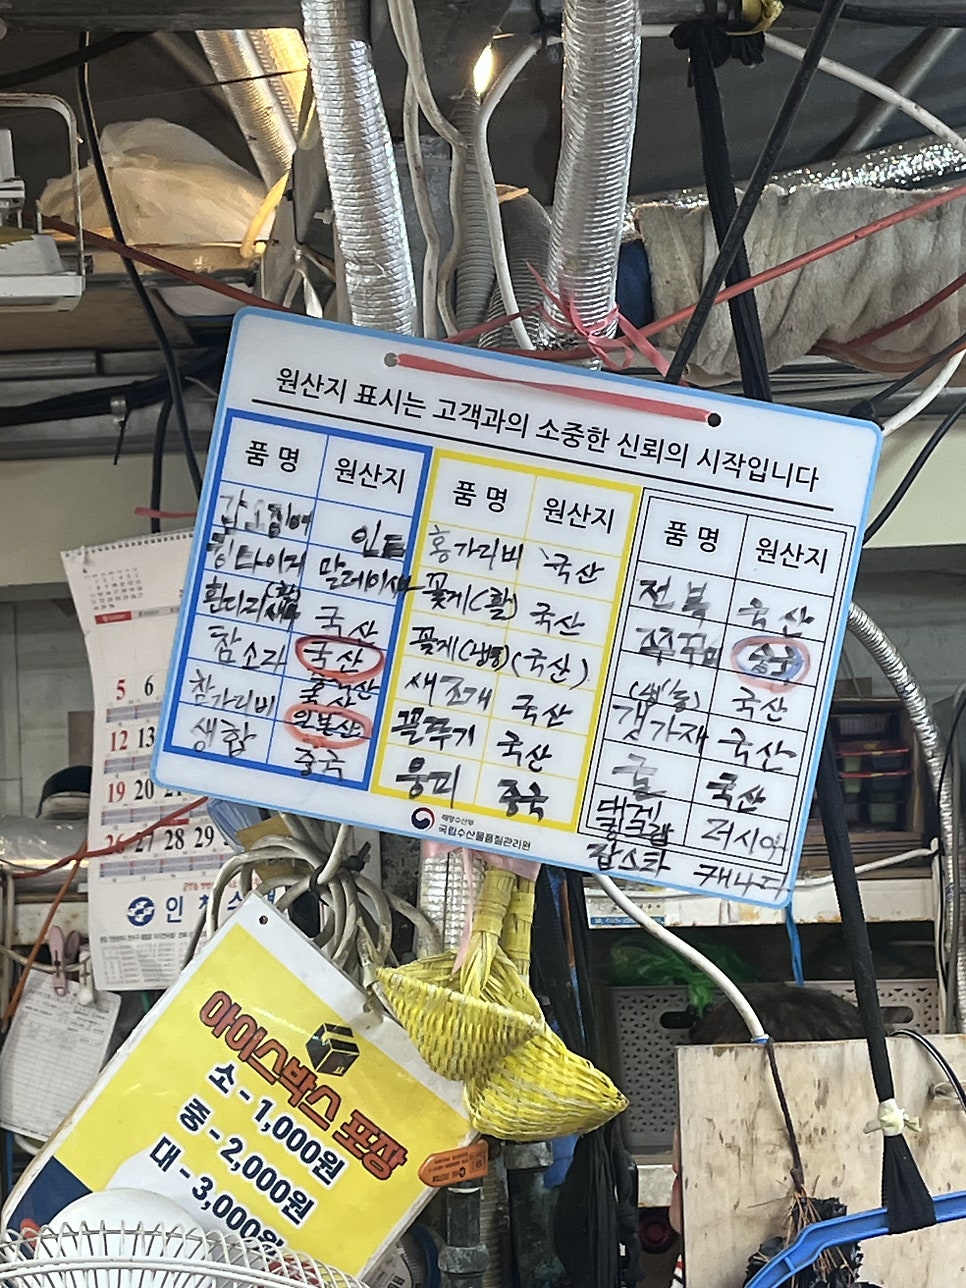 원산지 표시는 고객과의 소중한 신뢰의 시작입니다
품명 원산지
갑오징어 인도
흰다리새우(활)
말레이시아
국산
참소라 국산
중국산
참가리비 일본산
생합 중국
품명 원산지
홍가리비 국산
꽃게(활) 국산
꽃게(냉동) (국산)
새조개 국산
꼴뚜기 국산
웅피 중국
품명 원산지
전복 국산
쭈꾸미 중국
국산
갯가재 국산
굴 국산
대게
킹크랩 러시아
랍스타 캐나다
해양수산부
국립수산물품질관리원
5 6
12 13
19 20 21
26 27 28 29
인천수협
아이스박스 포장
소-1,000원
중-2,000원
대-3,000원